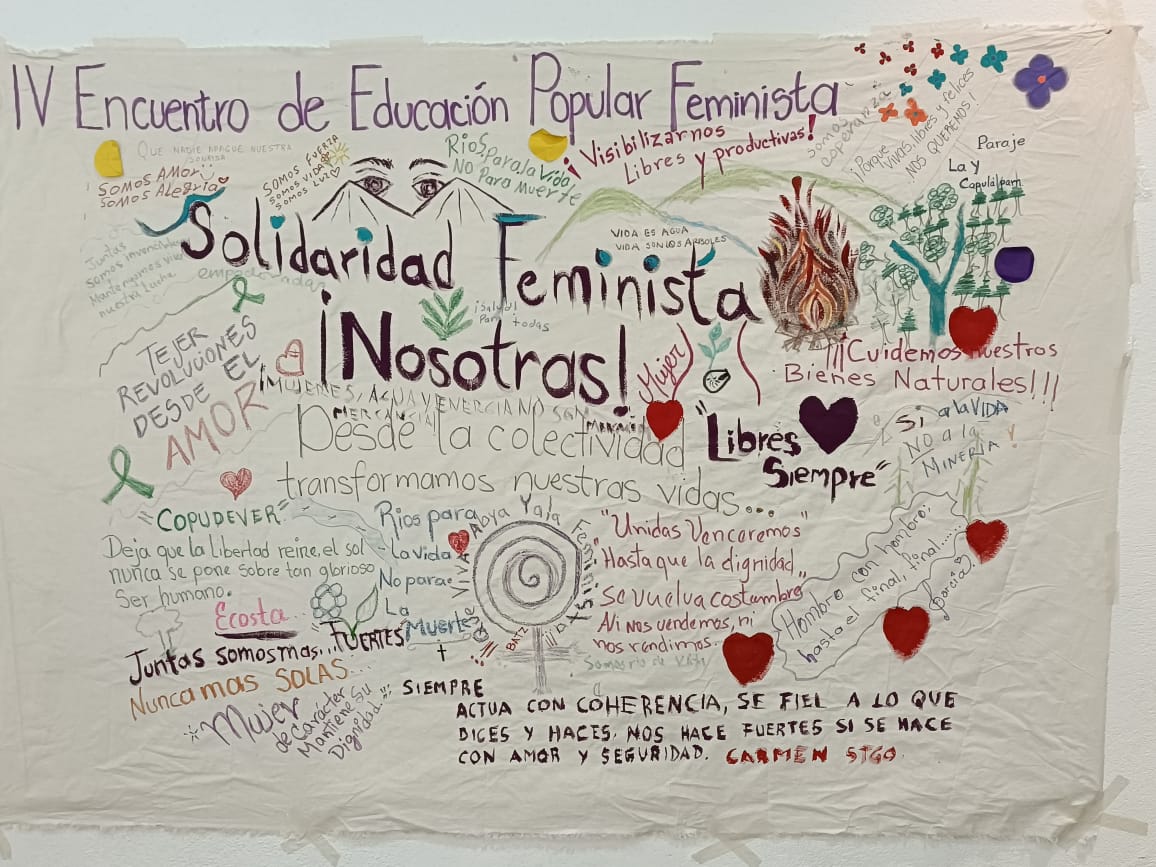 IV Encuentro de Educación Popular Feminista
QUE NADIE APAGUE NUESTRA
SONRISA
SOMOS AMOR
SOMOS ALEGRÍA
SOMOS FUERZA
SOMOS VIDA
SOMOS LUZ
Rios para la Vida,
NO Para Muerte
¡Visibilizarnos
Libres y productivas!
somos
esperanza
¡Porque
vivas, libres y felices
NOS QUEREMOS!
Paraje
La Y
Capulalpam
Juntas
somos invencibles
Mantengamos viva
nuestra lucha
empoderadas
Solidaridad Feminista
VIDA ES AGUA
VIDA SON LOS ARBOLES
¡Salud!
Para todas
¡Nosotras!
TEJER
REVOLUCIONES
DESDE EL
AMOR
Mujer
¡¡¡Cuidemos nuestros
Bienes Naturales!!!
¡MUJERES, AGUA Y ENERGIA NO SON
MERCANCIA
Desde la colectividad
transformamos nuestras vidas...
"Libres
Siempre"
SI a la VIDA
NO a la
MINERIA
"COPUDEVER"
Deja que la libertad reine, el sol
nunca se pone sobre tan glorioso
Ser humano.
Ecosta
Rios para
La vida
No para
La
Muerte
VIVA Abya Yala Feminista
BATZ
"Unidas Venceremos"
"Hasta que la dignidad
se vuelva costumbre"
Ni nos vendemos, ni
nos rendimos.
Somos rio de vida
Hombro con hombro:
hasta el final, final....
Juntas somos mas... "FUERTES"
Nunca mas SOLAS...
Mujer
de Carácter
Mantiene su
Dignidad...
SIEMPRE
ACTUA CON COHERENCIA, SE FIEL A LO QUE
DICES Y HACES. NOS HACE FUERTES SI SE HACE
CON AMOR Y SEGURIDAD. CARMEN STGO.